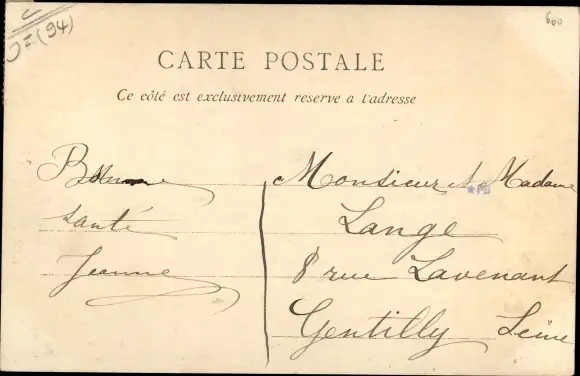 (94)
600
CARTE POSTALE
Ce côté est exclusivement reserve a l'adresse
Bonne
santé
Jeanne
Monsieur et Madame
Lange
8 rue Lavenant
Gentilly Seine